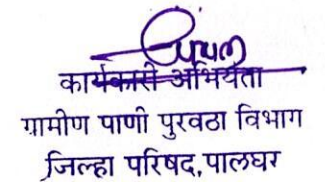 कार्यकारी अभियंता
ग्रामीण पाणी पुरवठा विभाग
जिल्हा परिषद, पालघर